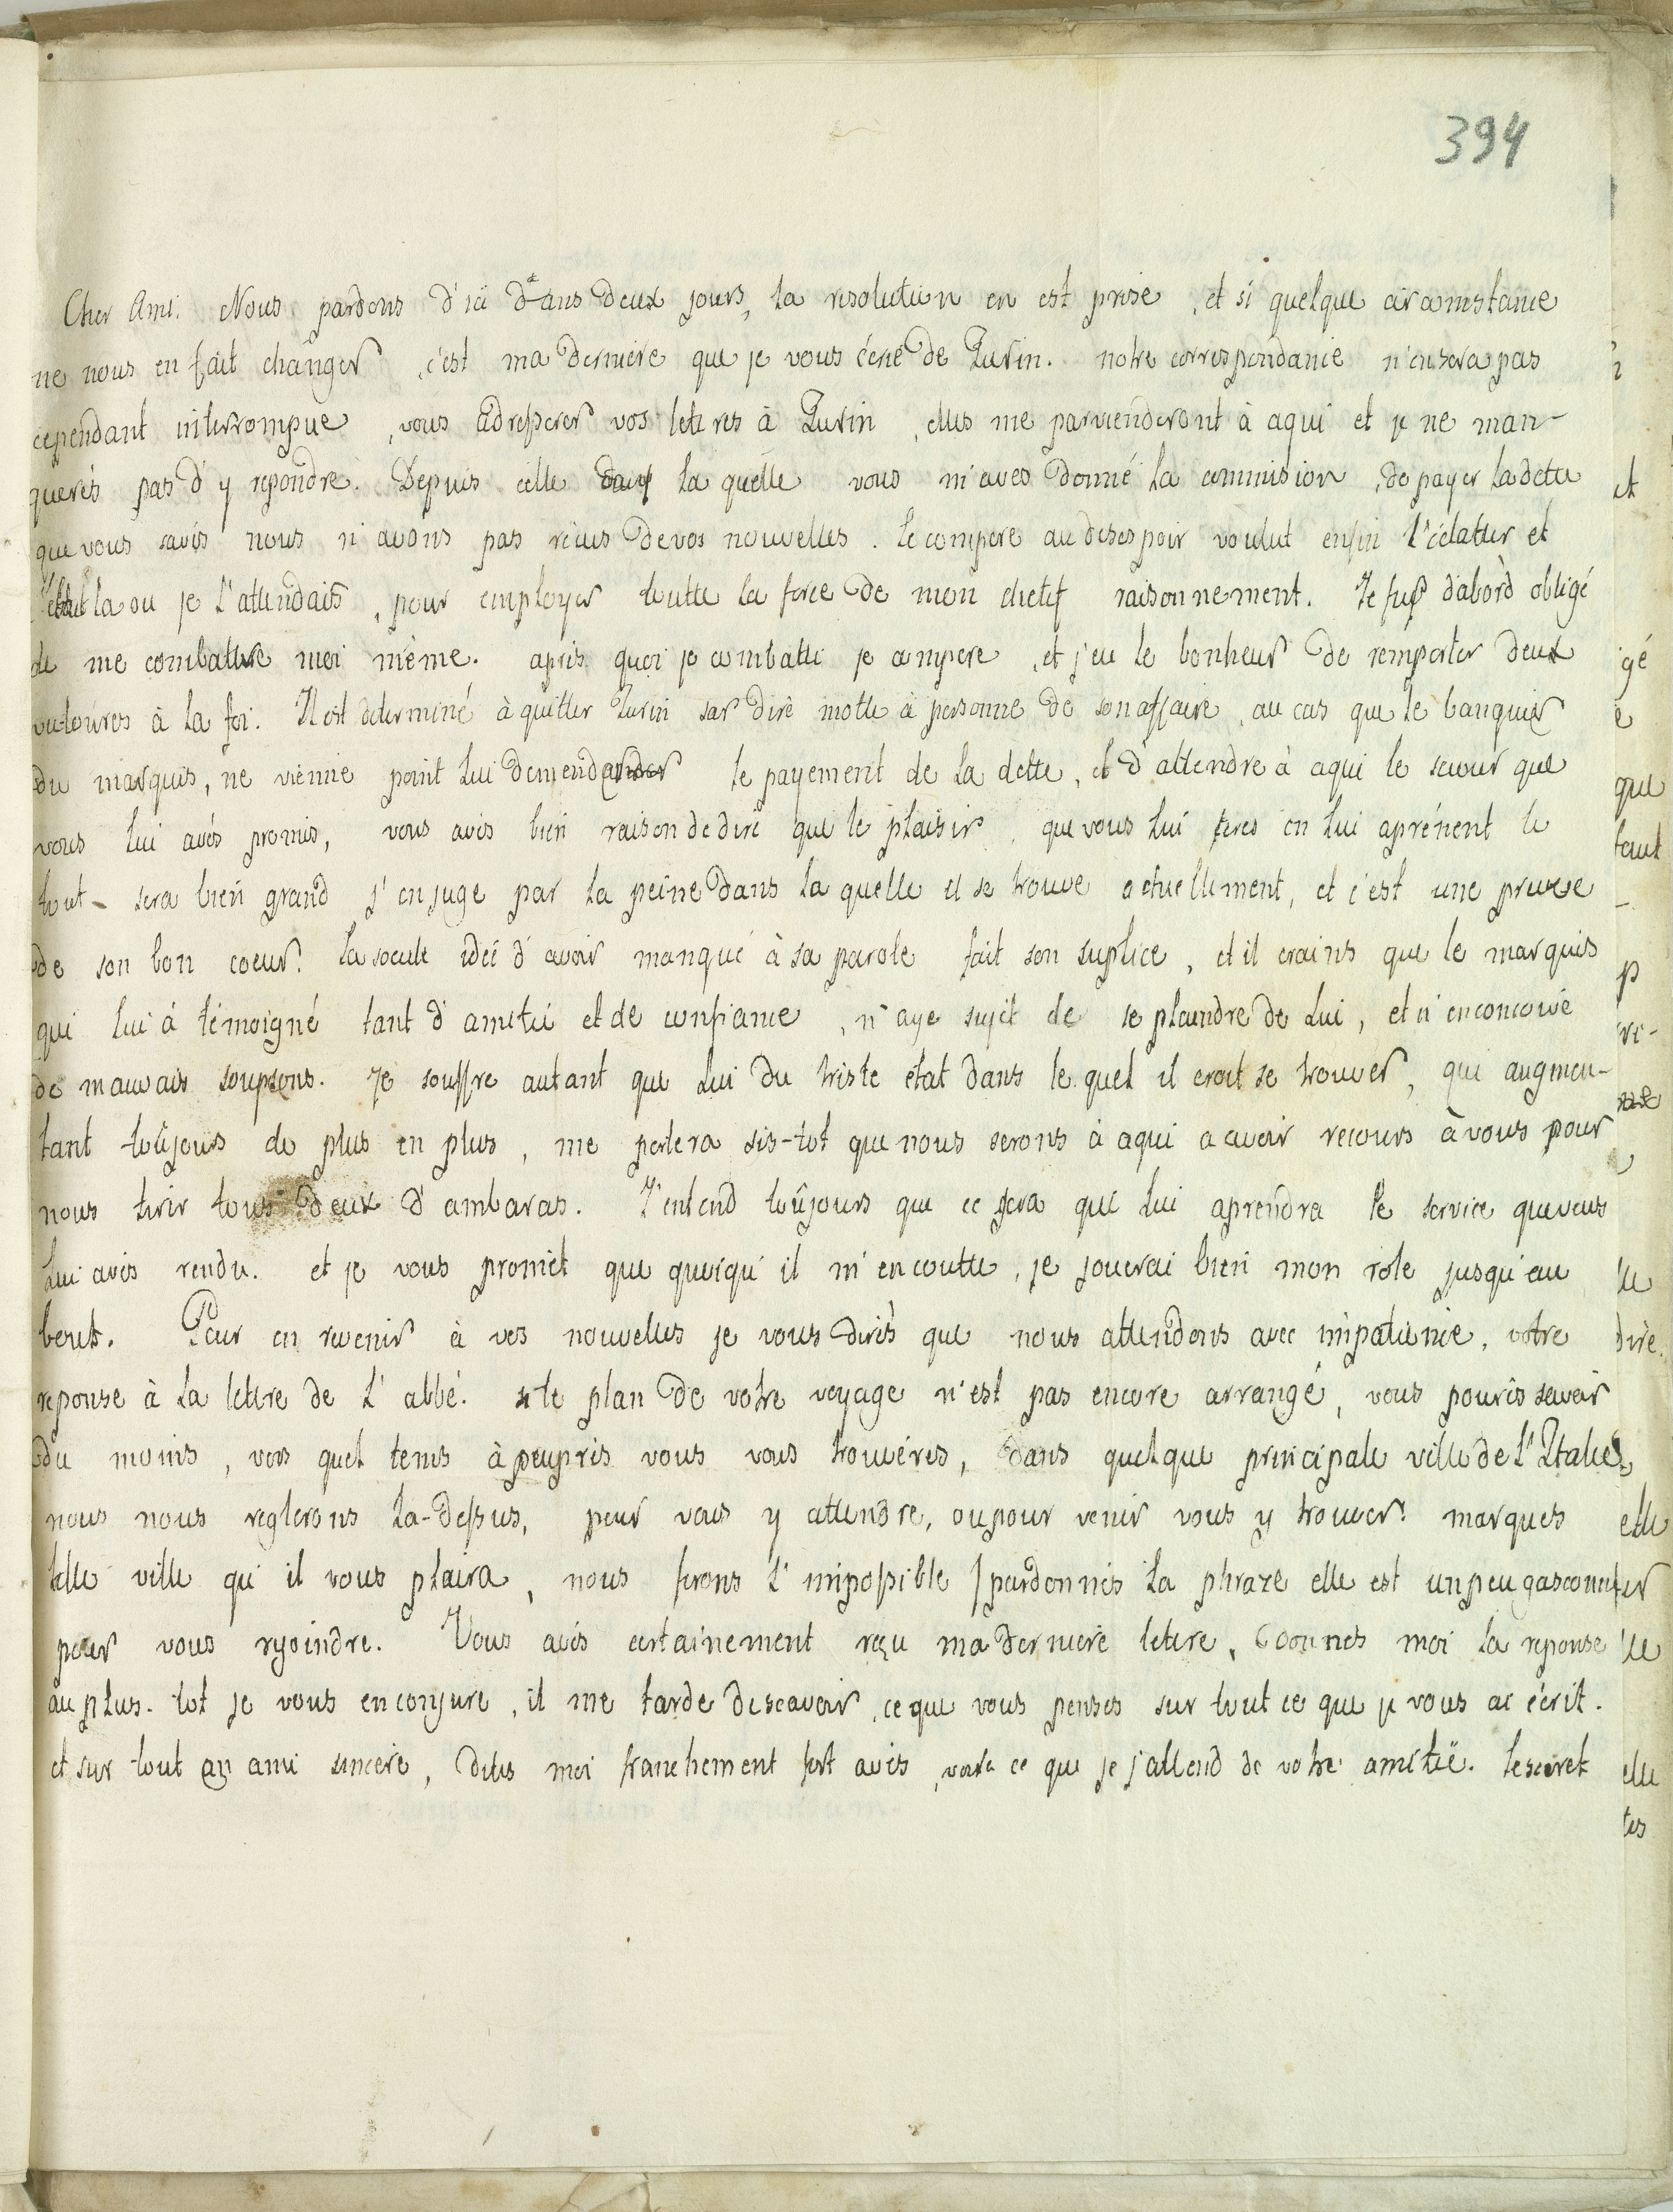 394
Cher Ami. Nous pardons d'ici dans deux jours, la resolution en est prise, et si quelque circonstance
ne nous en fait changer, c'est ma derniere que je vous écrie de Turin. notre correspondance n'en sera pas
cependant interrompue, vous adresserer vos letires à Turin, elles me parvienderont à aqui et je ne man-
querés pas d'y repondre. Depuis celle dans la quelle vous m'aves donné la commision, de payer la dette
que vous savés nous n'avons pas récus de vos nouvelles. le compere au desespoir voulut enfin l'éclatter et
c'etait la ou je l'attendais, pour employer toutte la force de mon chetif raisonnement. Je fus d'abord obligé
de me combattre moi même. après quoi je combatti je compere, et j'eu le bonheur de remporter deux
victoires à la foi. Il est determiné à quitter Turin sans dire motte à personne de son affaire, au cas que le banquier
du marquis, ne vienne point lui demender le payement de la dette, et d'attendre à aqui le secour que
vous lui avés promis, vous avés bien raison de dire que le plaisir, que vous lui feres en lui aprénent le
tout - sera bien grand j'en juge par la peine dans la quelle il se trouve actuellement, et c'est une preuve
de son bon coeur. la soeule idée d'avoir manqué à sa parole fait son suplice, et il crains que le marquis
qui lui à témoigné tant d'amitié et de confiance, n'aye sujet de se plaindre de lui, et n'en concoive
de mauvais soupsons. Je souffre autant que lui du triste état dans le quel il croit se trouver, qui augmen-
tant toûjours de plus en plus, me portera sis-tot que nous serons à aqui a avoir recours à vous pour
nous tirir tous deux d'ambaras. J'entend toûjours que ce sera qui lui aprendra le service que vous
lui avés rendu. et je vous promet que quoiqu'il m'en coutte, je jouerai bien mon role jusqu'au
bout. Pour en revenir à vos nouvelles je vous dirès que nous attendons avec impatience, votre
reponse à la letire de l'abbé. si le plan de votre voyage n'est pas encore arrangé, vous pourés savoir
du moins, vers quel tems à peuprés vous vous trouvéres, dans quelque principale ville de l'Italie,
nous nous reglerons la-dessus, pour vous y attendre, ou pour venir vous y trouver. marques
telle ville qu'il vous plaira, nous ferons l'impossible / pardonnés la phraze elle est un peu gasconne
pour vous rejoindre. Vous avés certainement reçu ma derniere letire, donnes moi la reponse
au plus-tot je vous en conjure, il me tarde de scavoir, ce que vous penses sur tout ce que je vous ai écrit.
et sur tout en ami sincere, dites moi franchement fort avis, voila ce que je j'attend de votre amitié. le secret